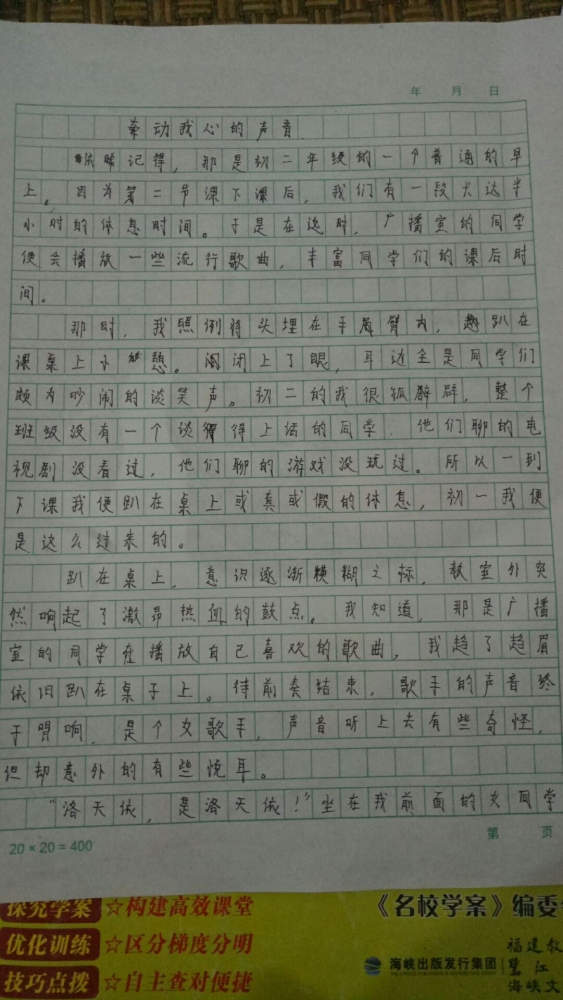 年 月 日
牵动我心的声音
依稀记得，那是初二年级的一个普通的早
上。因为第二节课下课后，我们有一段大达半
小时的休息时间。于是在这时，广播室的同学
便会播放一些流行歌曲，丰富同学们的课后时
间。
那时，我照例将头埋在手臂内，趴在
课桌上小憩。闭上了眼，耳边全是同学们
颇为吵闹的谈笑声。初二的我很孤僻，整个
班级没有一个谈得上话的同学，他们聊的电
视剧没看过，他们聊的游戏没玩过。所以一到
下课我便趴在桌上或真或假的休息，初一我便
是这么过来的。
趴在桌上，意识逐渐模糊之际，教室外突
然响起了激昂热血的鼓点。我知道，那是广播
室的同学在播放自己喜欢的歌曲，我趋了趋眉
依旧趴在桌子上。待前奏结束，歌手的声音终
于响，是个女歌手，声音听上去有些奇怪，
但却意外的有些悦耳。
“洛天依，是洛天依！”坐在我前面的女同学
20×20=400
第 页
探究学案 ☆构建高效课堂
《名校学案》编委
优化训练 ☆区分梯度分明
海峡出版发行集团
福建教
望江
技巧点拨 ☆自主查对便捷
海峡文